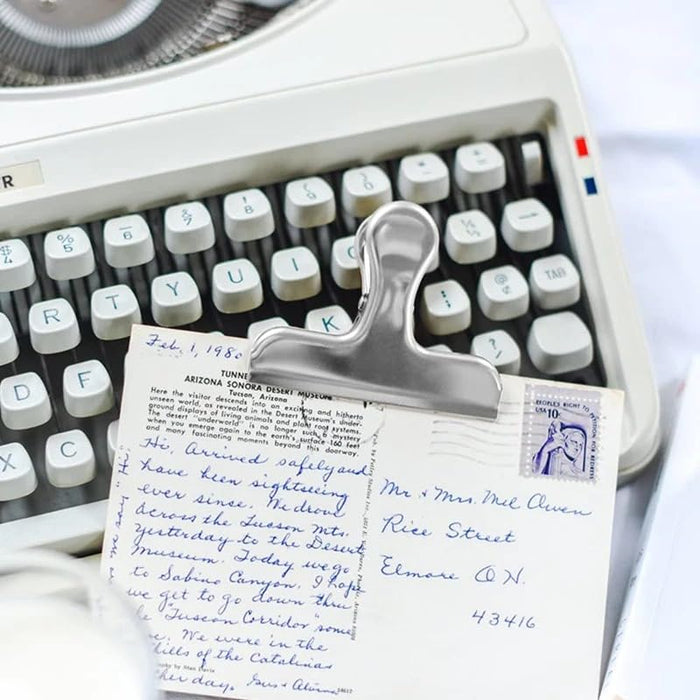 R
$
4
%
5
–
6
&
7
8
9
R
T
Y
U
I
K
D
F
X
C
@
TAB
Feb. 1, 198
TUNNE
ARIZONA SONORA DESERT MUSEUM
Tucson, Arizona
Here the visitor descends into an exciting and hitherto
unseen world, as revealed in the Desert Museum's under-
ground displays of living animals and plant root systems.
The desert "underworld" is no longer such a mystery
when you emerge again to the earth's surface 160 feet
and many fascinating moments beyond this doorway.
Hi, Arrived safely and
have been sightseeing
ever since. We drove
across the Tucson Mts.
yesterday to the Desert
Museum. Today we go
to Sabino Canyon. I hope
we get to go down thru
"Tuscon Corridor" some
We were in the
hills of the Catalinas
her day. Gus & Alvina
by Stan Davis
PEOPLE'S RIGHT TO PETITION FOR REDRESS
USA 10c
Mr. & Mrs. Mel Owen
Rice Street
Elmore OH.
43416